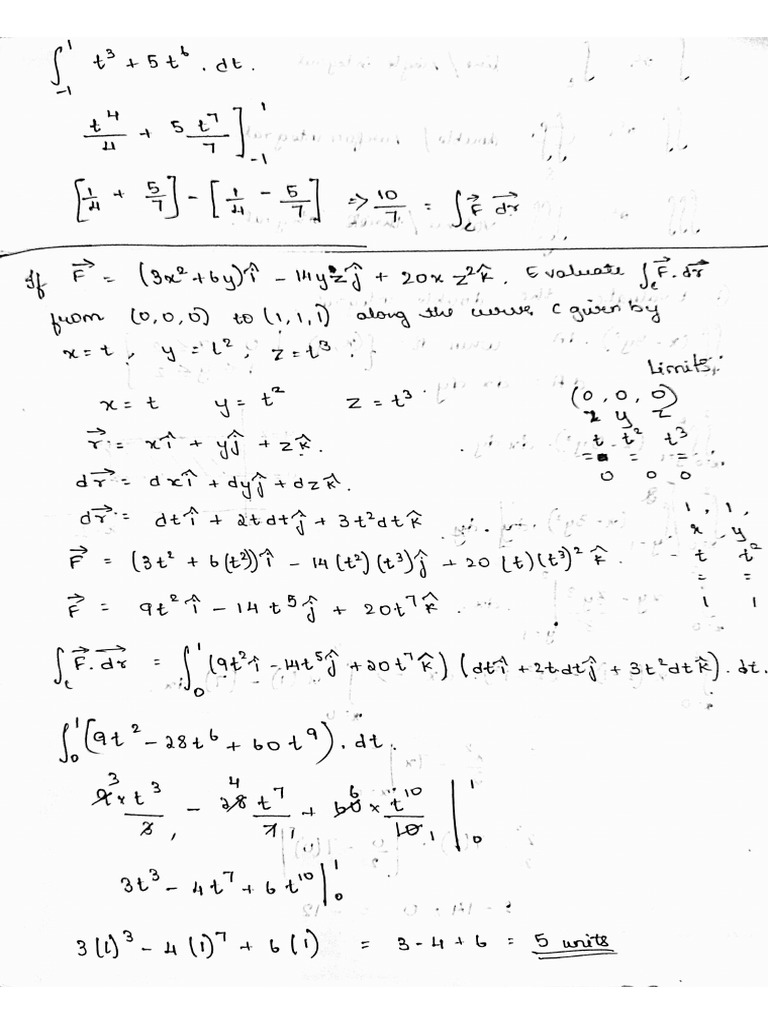 ∫₋₁¹ t³ + 5t⁶ . dt.
t⁴/4 + 5 t⁷/7 ]₋₁¹
[1/4 + 5/7] - [1/4 - 5/7] => 10/7 = ∫c F⃗ dr⃗
If F⃗ = (3x² + 6y)î - 14yzĵ + 20xz²k̂. Evaluate ∫c F⃗.dr⃗
from (0,0,0) to (1,1,1) along the curve C given by
x = t, y = t², z = t³.
Limits:
x = t y = t² z = t³.
(0, 0, 0)
x y z
t t² t³
= = =
0 0 0
r⃗ = xî + yĵ + zk̂.
dr⃗ = dxî + dyĵ + dzk̂.
dr⃗ = dtî + 2tdtĵ + 3t²dtk̂
1, 1,
x y
t t²
= =
1 1
F⃗ = (3t² + 6(t²))î - 14(t²)(t³)ĵ + 20(t)(t³)²k̂.
F⃗ = 9t²î - 14t⁵ĵ + 20t⁷k̂.
∫c F⃗.dr⃗ = ∫₀¹ (9t²î - 14t⁵ĵ + 20t⁷k̂) (dtî + 2tdtĵ + 3t²dtk̂).dt.
∫₀¹ (9t² - 28t⁶ + 60t⁹).dt.
3 4 6
9 × t³/3 - 28 t⁷/7 + 60 × t¹⁰/10 |₀¹
1 1 1
3t³ - 4t⁷ + 6t¹⁰ |₀¹
3(1)³ - 4(1)⁷ + 6(1) = 3 - 4 + 6 = 5 units